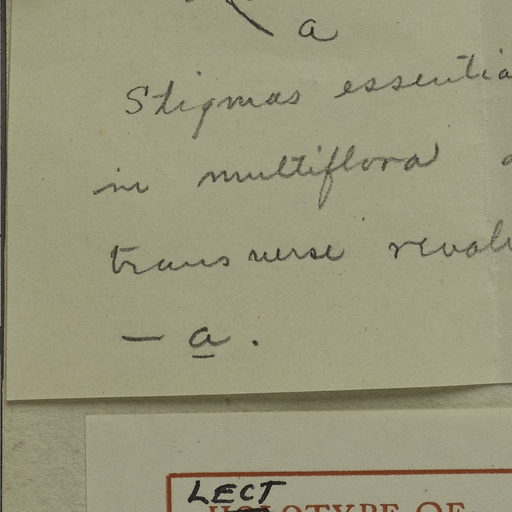 a
Stigmas essentia
in multiflora
transverse revolu
— a .
LECT
HOLOTYPE OF